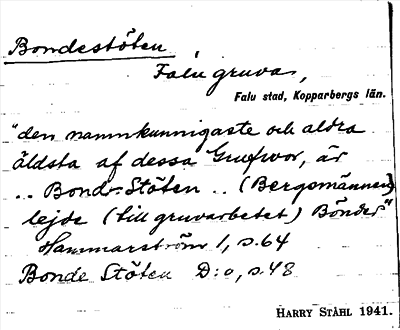 Bondestöten
Falu gruva,
Falu stad, Kopparbergs län.
"den namnkunnigaste och aldra
äldsta af dessa Grufwor, är
.. Bond-Stöten .. (Bergsmännen
lejde (till gruvarbetet) Bönder"
Hammarström 1, s. 64
Bonde Stöten D:o, s. 48
HARRY STÅHL 1941.